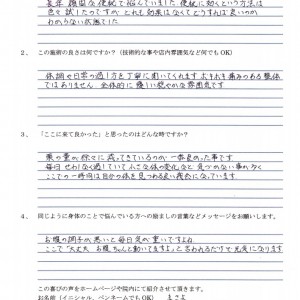 長年 頑固な便秘で悩んでいました 便秘に効くという方法は
色々試したのですが どれも効果はなくてどうすれば良いのか
わからない状態でした
2. この施術の良さは何ですか？（技術的な事や店内雰囲気など何でもOK）
体調や日常の過ごし方を丁寧に聞いてくれます ボキボキ痛みのある整体
ではありません 全体的に優しい穏やかな雰囲気です
3. 「ここに来て良かった」と思ったのはどんな時ですか？
薬の量が徐々に減ってきているのが一番良かった事です
毎日せわしなく過していて小さな体の変化など気づかない事が多く
ここでの一時間は自分の体を見つめる良い機会になっています
4. 同じように身体のことで悩んでいる方への励ましの言葉などメッセージをお願いします。
お腹の調子が悪いと毎日気が重いですよね
ここで「大丈夫 お腹ちゃんと動いてますよ」と言われるだけで元気になります
この喜びの声をホームページや院内にて紹介させて頂きます。
お名前（イニシャル、ペンネームでもOK）